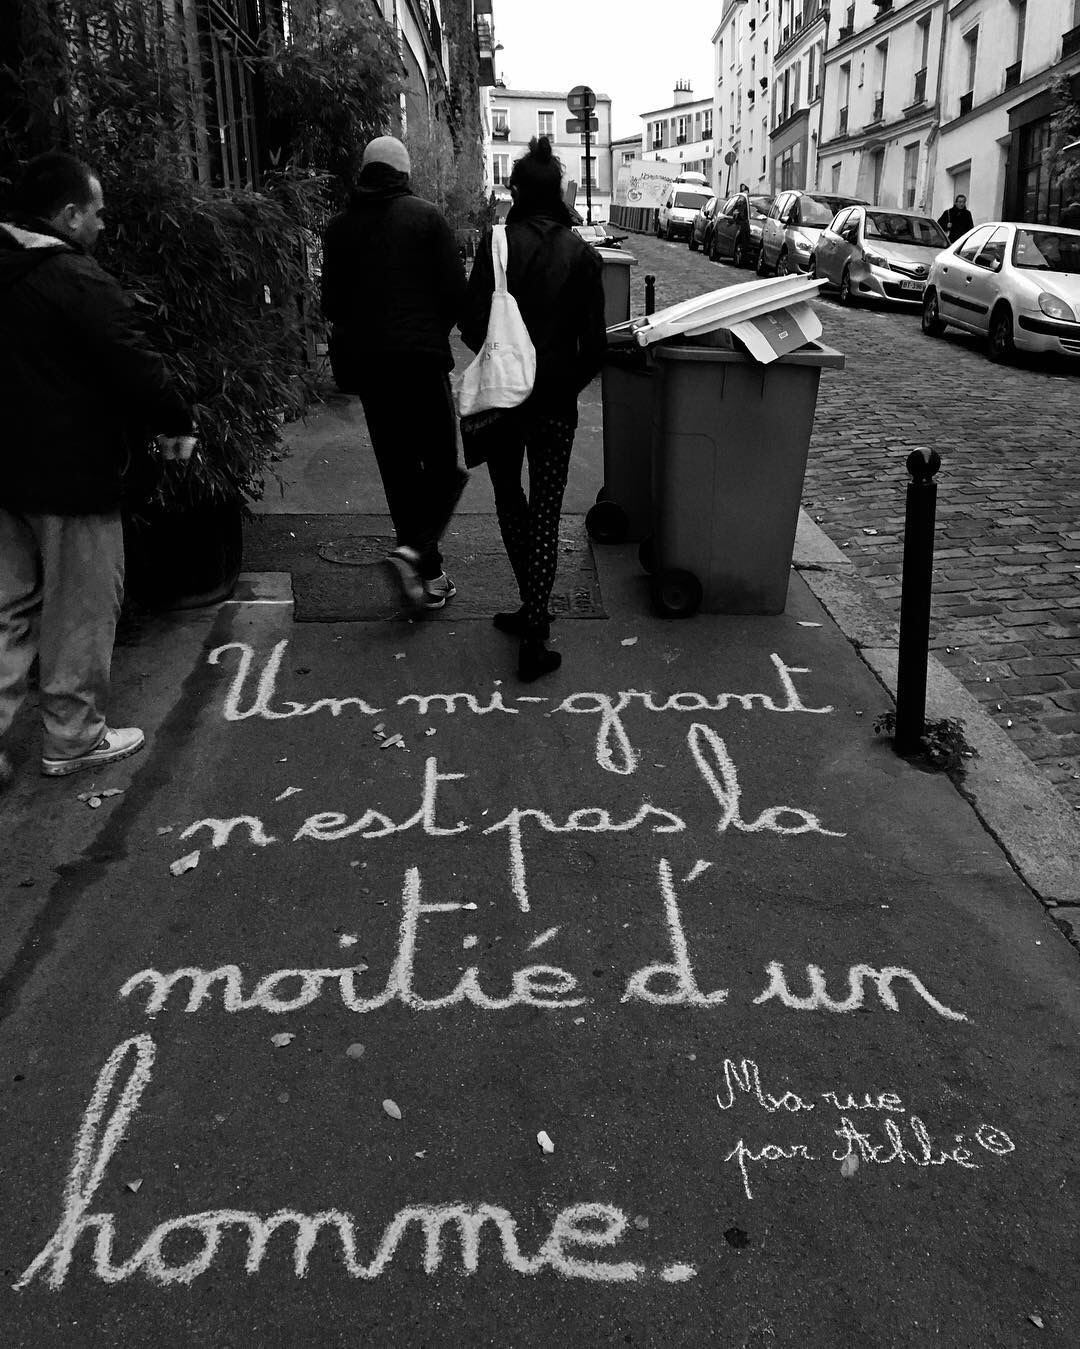 Un mi-grant
n'est pas la
moitié d'un
homme.
Ma rue
par Achbé ©